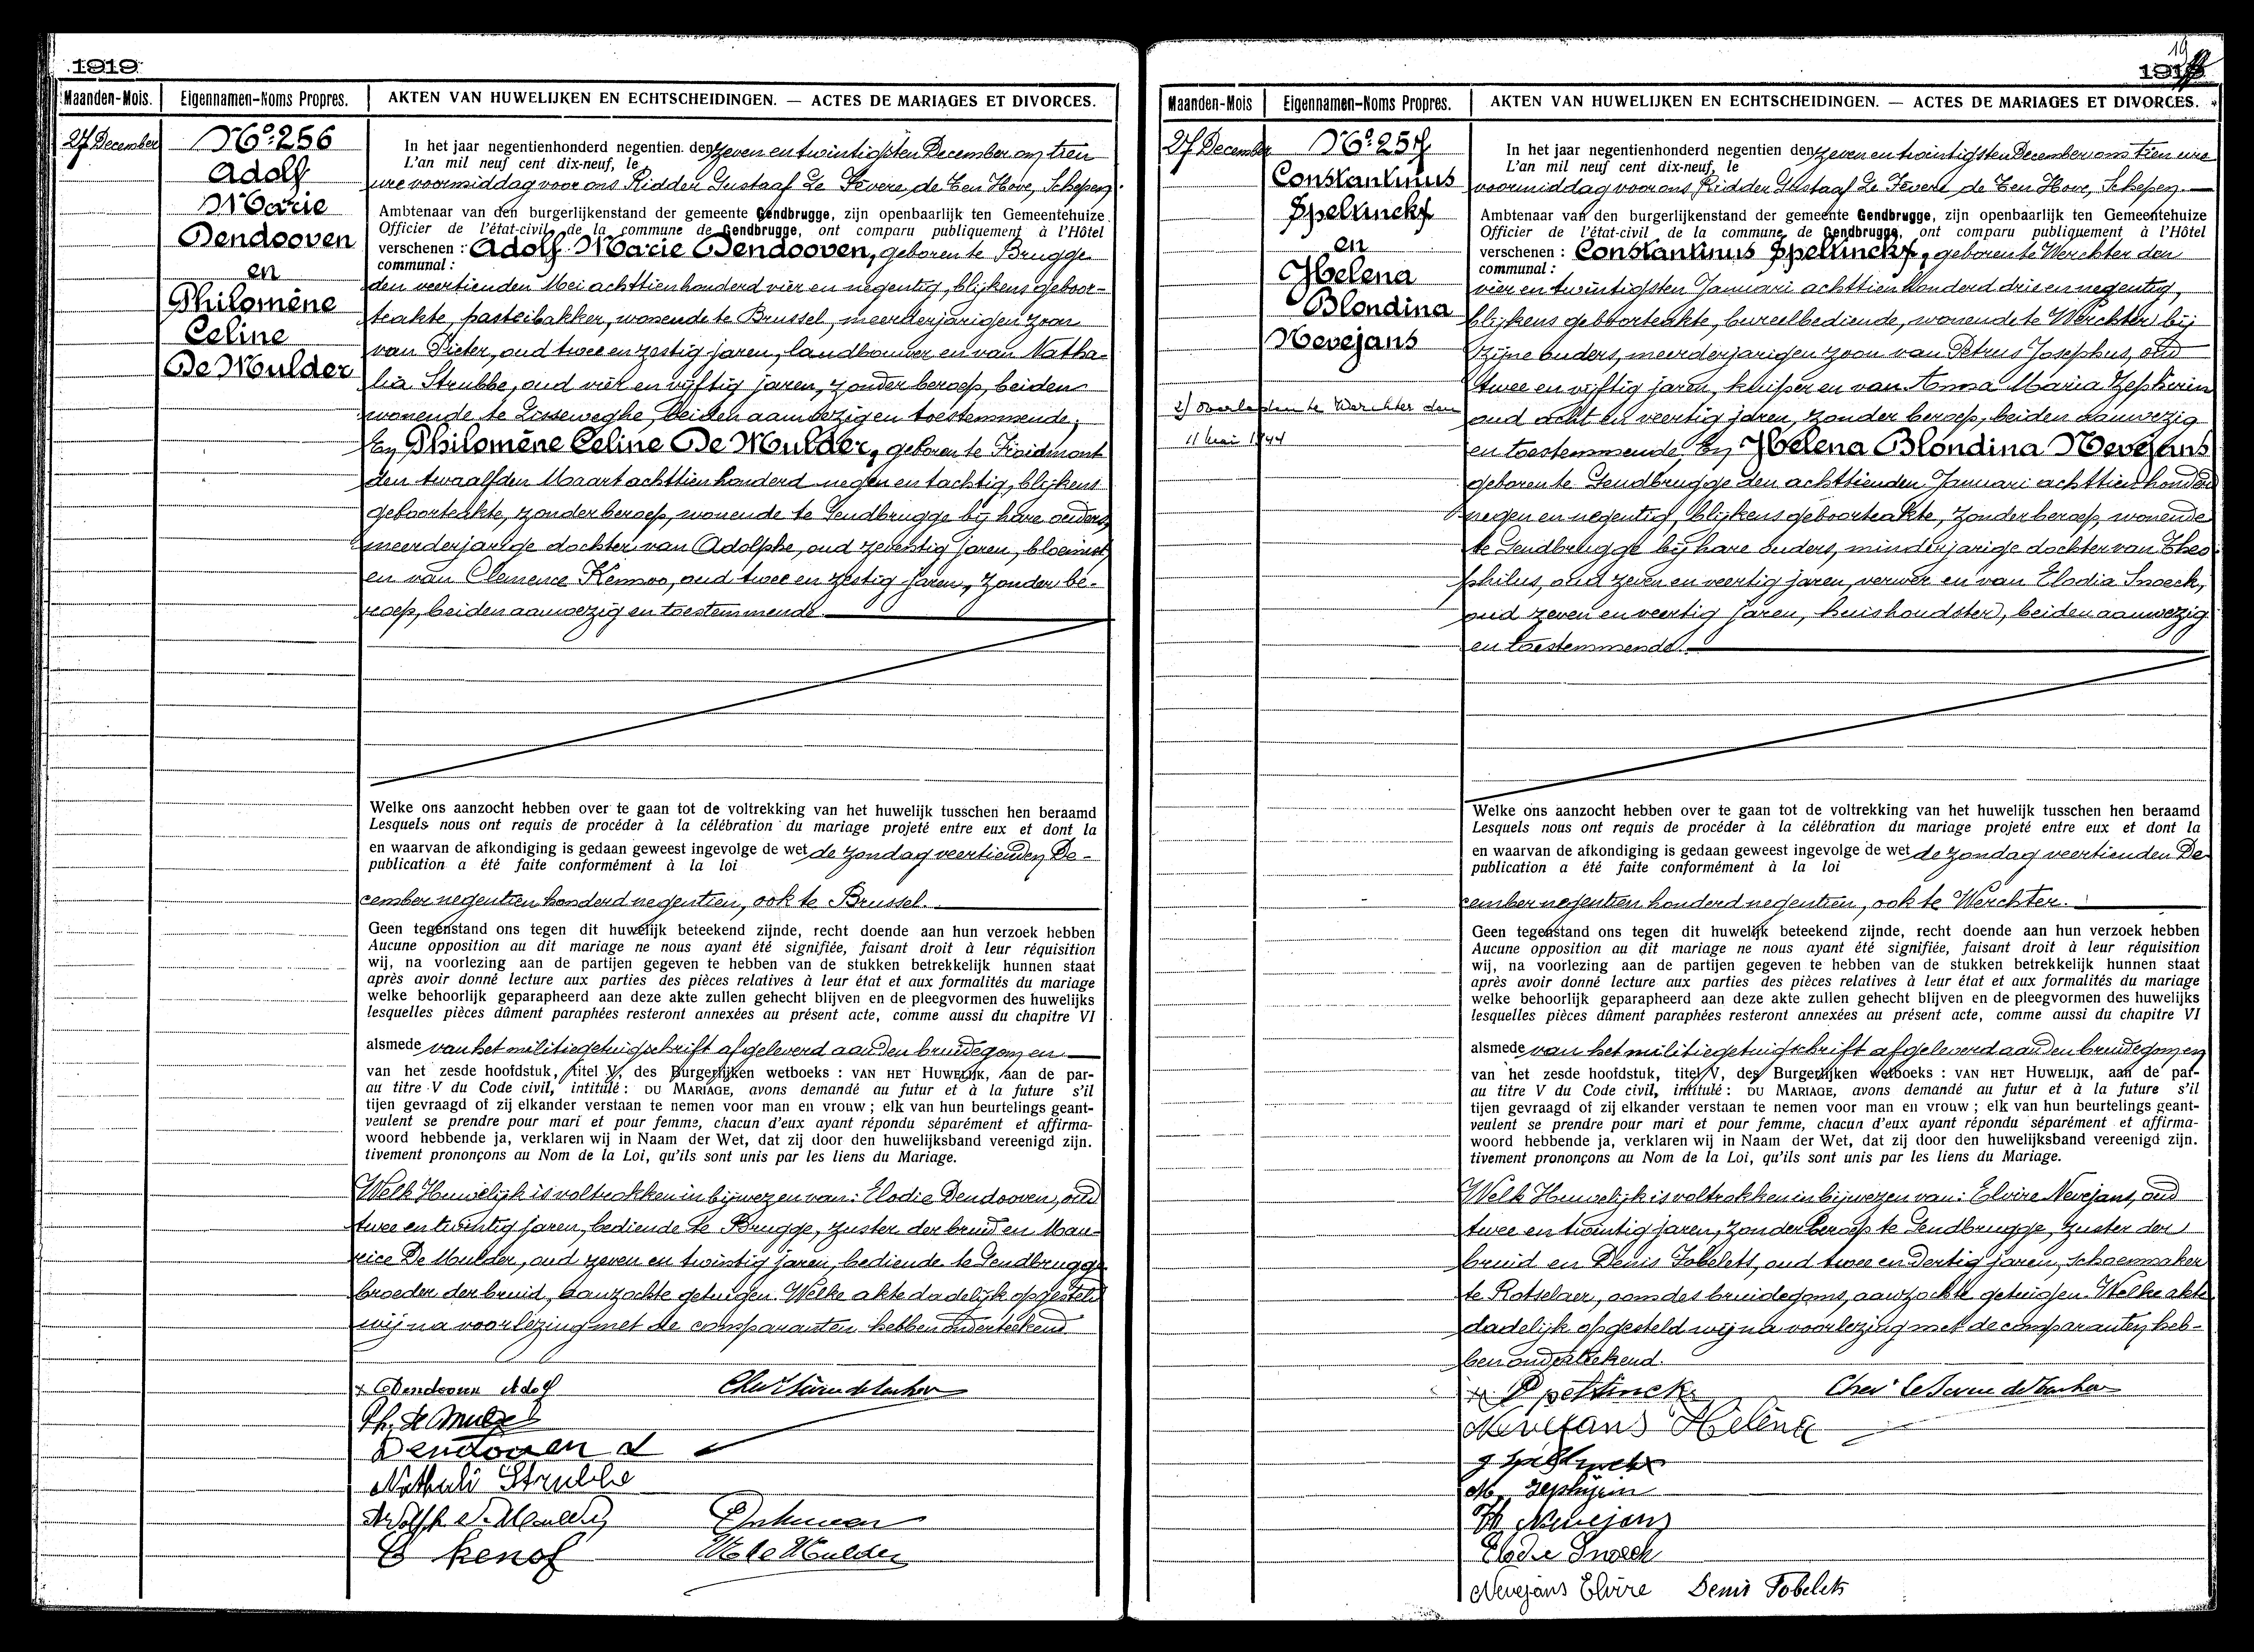 1919
Maanden-Mois. Eigennamen-Noms Propres. AKTEN VAN HUWELIJKEN EN ECHTSCHEIDINGEN. — ACTES DE MARIAGES ET DIVORCES.
27 December
No: 256
Adolf
Marie
Dendooven
en
Philomène
Celine
De Mulder
In het jaar negentienhonderd negentien. den zeven en twintigsten December om tien
L'an mil neuf cent dix-neuf, le
ure voormiddag voor ons Ridder Gustaaf Le Fevere de Ten Hove, Schepen
Ambtenaar van den burgerlijkenstand der gemeente Gendbrugge, zijn openbaarlijk ten Gemeentehuize
Officier de l'état-civil de la commune de Gendbrugge, ont comparu publiquement à l'Hôtel
verschenen : Adolf Marie Dendooven, geboren te Brugge
communal :
den veertienden Mei achttienhonderd vier en negentig, blijkens geboor-
teakte, pasteibakker, wonende te Brussel, meerderjarigen zoon
van Pieter, oud twee en zestig jaren, landbouwer en van Natha-
lia Strubbe, oud vier en vijftig jaren, zonder beroep, beiden
wonende te Lisseweghe, beiden aanwezig en toestemmende;
En Philomène Celine De Mulder, geboren te Froidmont
den twaalfden Maart achttienhonderd negen en tachtig, blijkens
geboorteakte, zonder beroep, wonende te Gendbrugge bij hare ouders,
meerderjarige dochter van Adolphe, oud zeventig jaren, bloemist,
en van Clemence Kennoo, oud twee en zestig jaren, zonder be-
roep, beiden aanwezig en toestemmende.
Welke ons aanzocht hebben over te gaan tot de voltrekking van het huwelijk tusschen hen beraamd
Lesquels nous ont requis de procéder à la célébration du mariage projeté entre eux et dont la
en waarvan de afkondiging is gedaan geweest ingevolge de wet de zondag veertienden De-
publication a été faite conformément à la loi
cember negentien honderd negentien, ook te Brussel.
Geen tegenstand ons tegen dit huwelijk beteekend zijnde, recht doende aan hun verzoek hebben
Aucune opposition au dit mariage ne nous ayant été signifiée, faisant droit à leur réquisition
wij, na voorlezing aan de partijen gegeven te hebben van de stukken betrekkelijk hunnen staat
après avoir donné lecture aux parties des pièces relatives à leur état et aux formalités du mariage
welke behoorlijk geparapheerd aan deze akte zullen gehecht blijven en de pleegvormen des huwelijks
lesquelles pièces dûment paraphées resteront annexées au présent acte, comme aussi du chapitre VI
alsmede van het militiegetuigschrift afgeleverd aan den bruidegom en
van het zesde hoofdstuk, titel V, des Burgerlijken wetboeks : VAN HET HUWELIJK, aan de par-
au titre V du Code civil, intitulé : DU MARIAGE, avons demandé au futur et à la future s'il
tijen gevraagd of zij elkander verstaan te nemen voor man en vrouw ; elk van hun beurtelings geant-
veulent se prendre pour mari et pour femme, chacun d'eux ayant répondu séparément et affirma-
woord hebbende ja, verklaren wij in Naam der Wet, dat zij door den huwelijksband vereenigd zijn.
tivement prononçons au Nom de la Loi, qu'ils sont unis par les liens du Mariage.
Welk Huwelijk is voltrokken in bijwezen van: Elodie Dendooven, oud
twee en twintig jaren, bediende te Brugge, zuster der bruid en Mau-
rice De Mulder, oud zeven en twintig jaren, bediende te Gendbrugge
broeder der bruid, aanzochte getuigen. Welke akte dadelijk opgesteld
wij na voorlezing met de comparanten hebben onderteekend
x Dendooven Adolf
Ph. De Mulder
Dendooven
Nathali Strubbe
Adolph De Mulder
C kenof
M De Mulder
1919
Maanden-Mois Eigennamen-Noms Propres. AKTEN VAN HUWELIJKEN EN ECHTSCHEIDINGEN. — ACTES DE MARIAGES ET DIVORCES.
27 December
No: 257
Constantinus
Speltinckx
en
Helena
Blondina
Nevejans
2) overleden te Werchter den
11 1944
In het jaar negentienhonderd negentien den zeven en twintigsten December om tien ure
L'an mil neuf cent dix-neuf, le
voormiddag voor ons Ridder Gustaaf Le Fevere de Ten Hove, Schepen
Ambtenaar van den burgerlijkenstand der gemeente Gendbrugge, zijn openbaarlijk ten Gemeentehuize
Officier de l'état-civil de la commune de Gendbrugge, ont comparu publiquement à l'Hôtel
verschenen : Constantinus Speltinckx, geboren te Werchter den
communal :
vier en twintigsten Januari achttien honderd drie en negentig,
blijkens geboorteakte, bureelbediende, wonende te Werchter bij
zijne ouders, meerderjarigen zoon van Petrus Josephus, oud
twee en vijftig jaren, kuiper en van Anna Maria Zephirin
oud acht en veertig jaren, zonder beroep, beiden aanwezig
en toestemmende; En Helena Blondina Nevejans
geboren te Gendbrugge den achttienden Januari achttien honderd
negen en negentig, blijkens geboorteakte, zonder beroep, wonende
te Gendbrugge bij hare ouders, minderjarige dochter van Theo-
philus, oud zeven en veertig jaren, verwer en van Elodia Snoeck,
oud zeven en veertig jaren, huishoudster, beiden aanwezig
en toestemmende.
Welke ons aanzocht hebben over te gaan tot de voltrekking van het huwelijk tusschen hen beraamd
Lesquels nous ont requis de procéder à la célébration du mariage projeté entre eux et dont la
en waarvan de afkondiging is gedaan geweest ingevolge de wet de zondag veertienden De
publication a été faite conformément à la loi
cember negentien honderd negentien, ook te Werchter.
Geen tegenstand ons tegen dit huwelijk beteekend zijnde, recht doende aan hun verzoek hebben
Aucune opposition au dit mariage ne nous ayant été signifiée, faisant droit à leur réquisition
wij, na voorlezing aan de partijen gegeven te hebben van de stukken betrekkelijk hunnen staat
après avoir donné lecture aux parties des pièces relatives à leur état et aux formalités du mariage
welke behoorlijk geparapheerd aan deze akte zullen gehecht blijven en de pleegvormen des huwelijks
lesquelles pièces dûment paraphées resteront annexées au présent acte, comme aussi du chapitre VI
alsmede van het militiegetuigschrift afgeleverd aan den bruidegom en
van het zesde hoofdstuk, titel V, des Burgerlijken wetboeks : VAN HET HUWELIJK, aan de par-
au titre V du Code civil, intitulé : DU MARIAGE, avons demandé au futur et à la future s'il
tijen gevraagd of zij elkander verstaan te nemen voor man en vrouw ; elk van hun beurtelings geant-
veulent se prendre pour mari et pour femme, chacun d'eux ayant répondu séparément et affirma-
woord hebbende ja, verklaren wij in Naam der Wet, dat zij door den huwelijksband vereenigd zijn.
tivement prononçons au Nom de la Loi, qu'ils sont unis par les liens du Mariage.
Welk Huwelijk is voltrokken in bijwezen van: Elvire Nevejans, oud
twee en twintig jaren, zonder beroep te Gendbrugge, zuster der
bruid en Denis Tobelets, oud twee en dertig jaren, schoenmaker
te Rotselaer, oom des bruidegoms, aanzochte getuigen. Welke akte
dadelijk opgesteld wij na voorlezing met de comparanten heb-
ben onderteekend.
Nevejans Hélène
M. Zephijrin
Th Nevejans
Elodie Snoeck
Nevejans Elvire Denis Tobelets